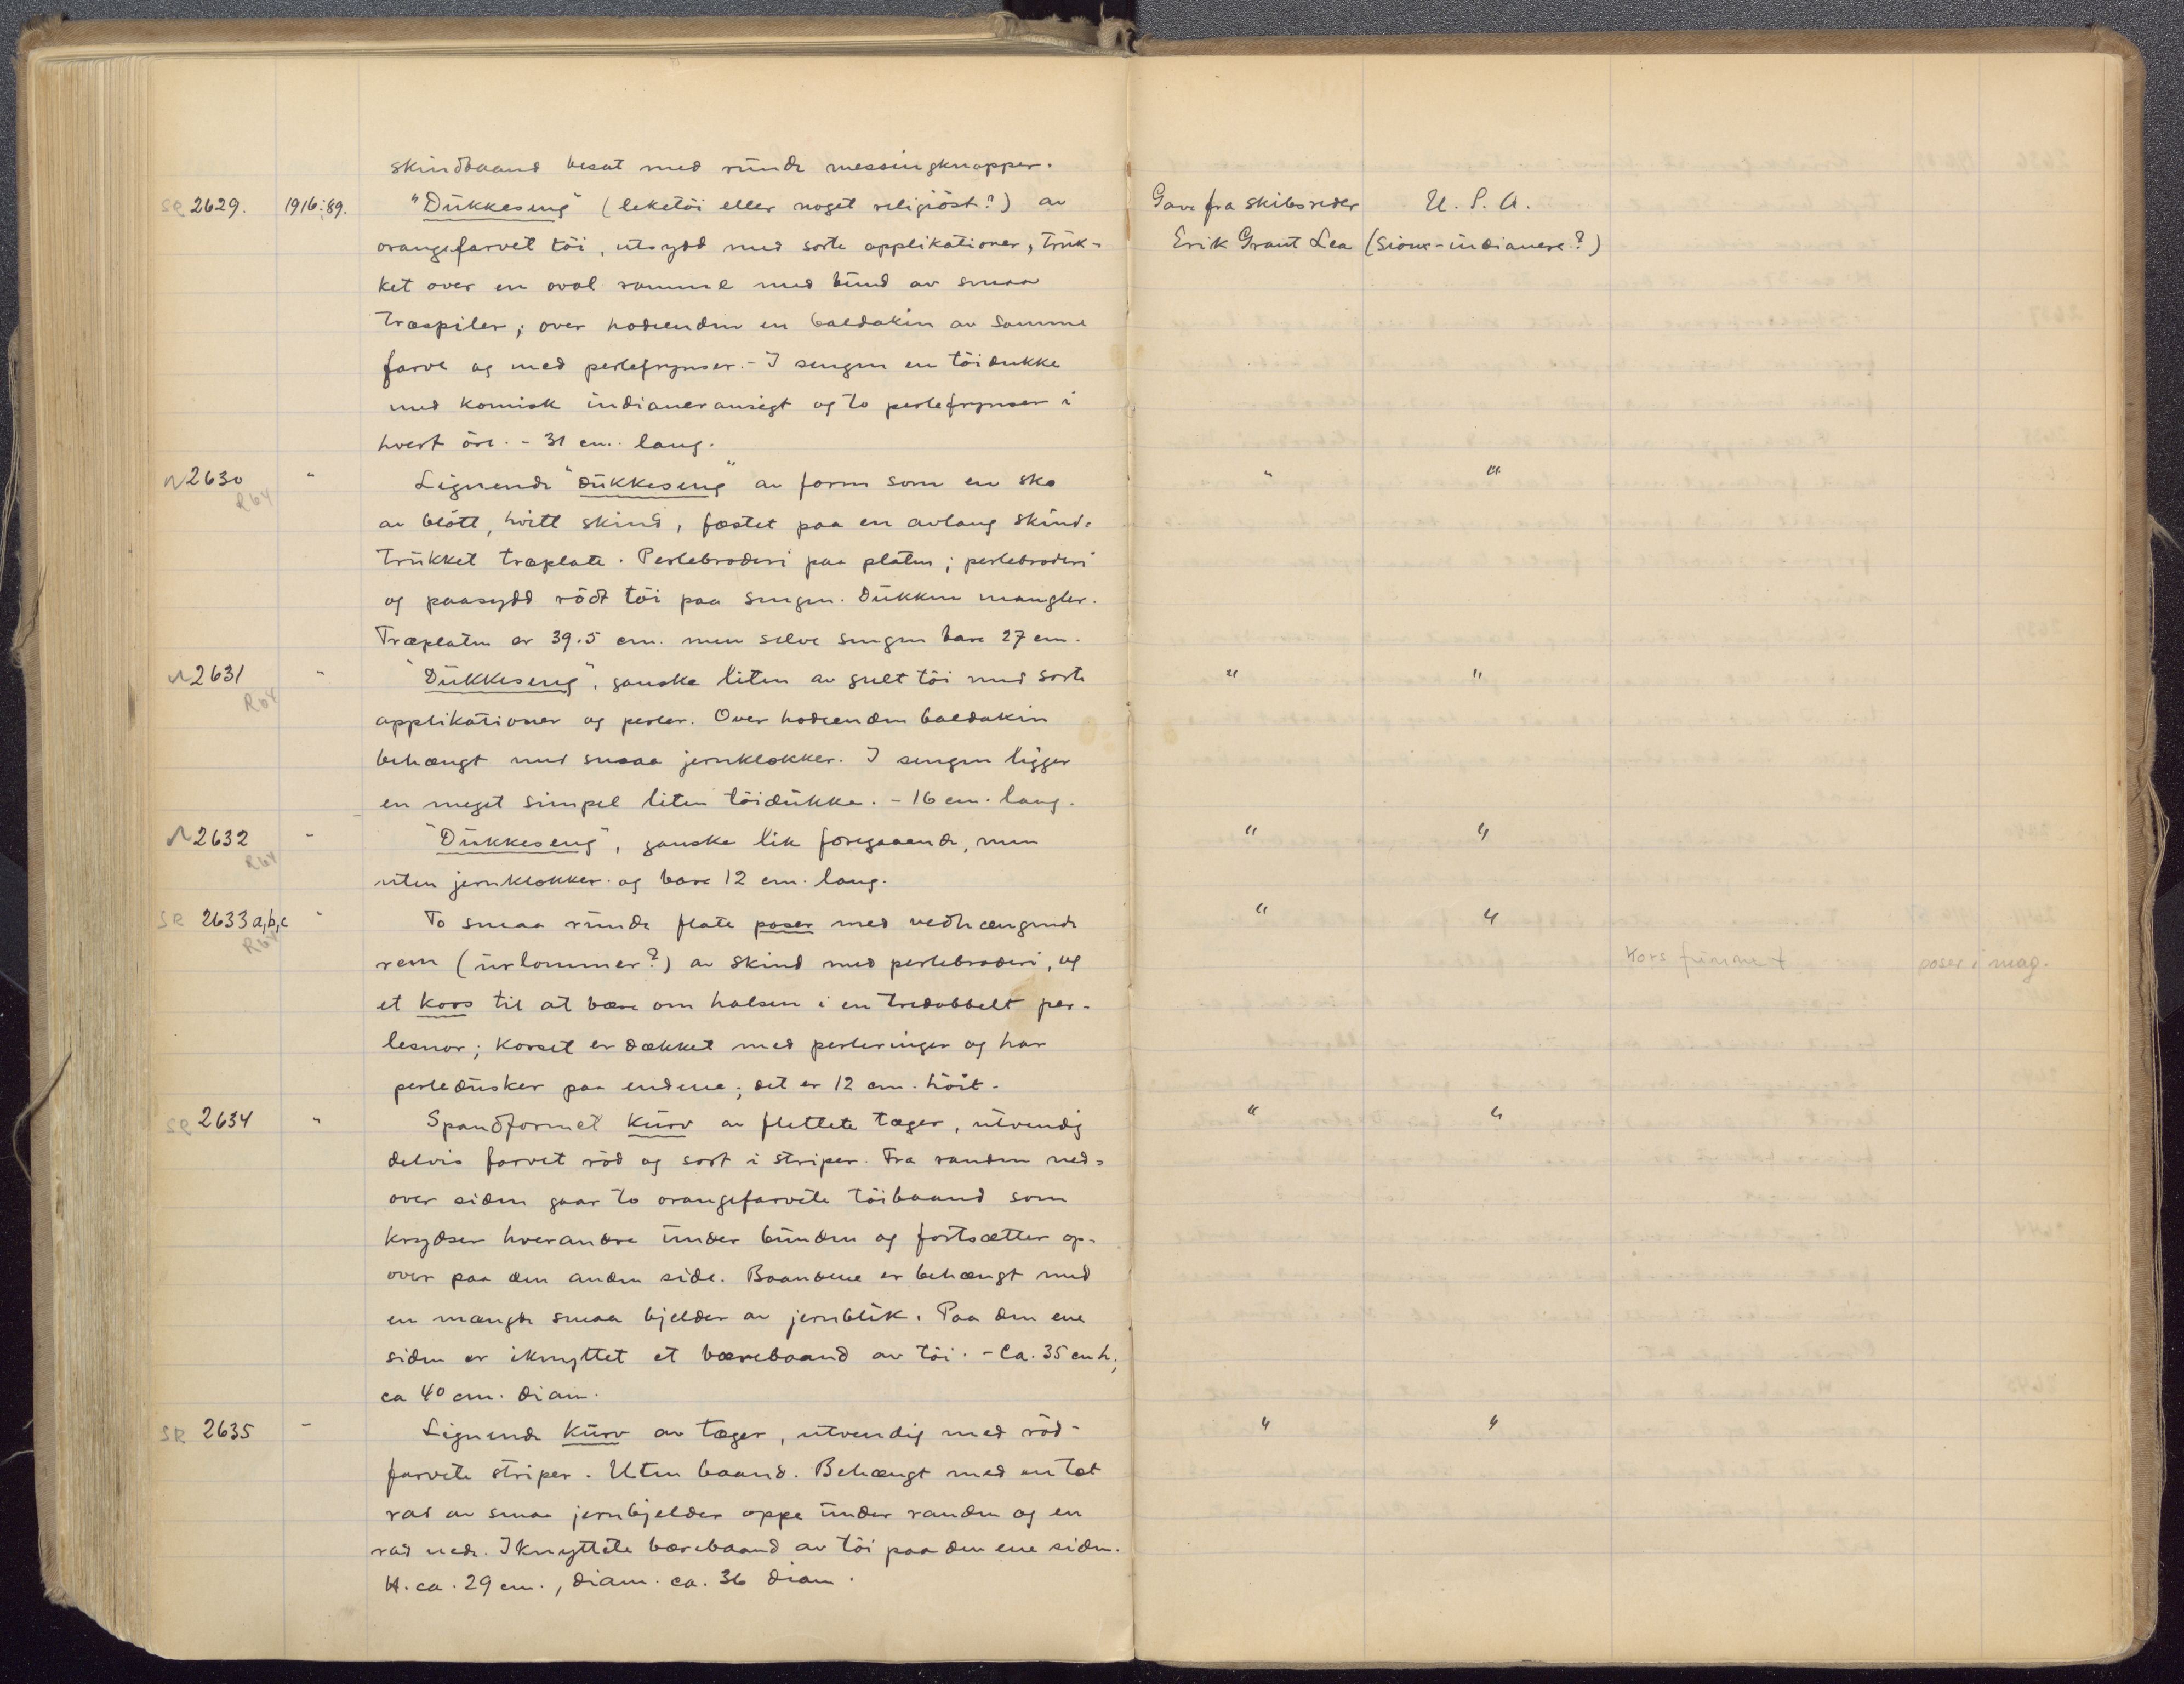 skindbaand besat med runde messingknapper.
SR 2629. 1916:89. "Dukkeseng" (leketöi eller noget religiöst?) av Gave fra skibsreder U. S. A.
orangefarvet töi, utsydd med sorte applikationer, truk- Erik Grant Lea (Sioux-indianere?)
ket over en oval ramme med bund av smaa
træspiler; over hodeenden en baldakin av samme
farve og med perlefrynser. - I sengen en töidukke
med komisk indianeransigt og to perlefrynser i
hvert öre. - 31 cm. lang.
N 2630 " Lignende "dukkeseng" av form som en sko " "
R64 av blött, hvitt skind, fæstet paa en avlang skind-
trukket træplate. Perlebroderi paa platen; perlebroderi
og paasydd rödt töi paa sengen. Dukken mangler.
Træplaten er 39.5 cm. men selve sengen bare 27 cm.
N 2631 " "Dukkeseng", ganske liten av gult töi med sorte " "
R64 applikationer og perler. Over hodeenden baldakin
behængt med smaa jernklokker. I sengen ligger
en meget simpel liten töidukke. - 16 cm. lang.
N 2632 " "Dukkeseng", ganske lik foregaaende, men " "
R64 uten jernklokker og bare 12 cm. lang.
SR 2633 a,b,c " To smaa runde flate poser med vedhængende " "
R64 rem (urlommer?) av skind med perlebroderi, og Kors funnet poser i mag.
et kors til at bære om halsen i en tredobbelt per-
lesnor; korset er dækket med perleringer og har
perledusker paa endene; det er 12 cm. höit.
SR 2634 " Spandformet kurv av flettete tæger, utvendig " "
delvis farvet röd og sort i striper. Fra randen ned-
over siden gaar to orangefarvete töibaand som
krydser hverandre under bunden og fortsætter op-
over paa den anden side. Baandene er behængt med
en mængde smaa bjelder av jernblik. Paa den ene
siden er iknyttet et bærebaand av töi. - Ca. 35 cm h.,
ca 40 cm. diam.
SR 2635 " Lignende kurv av tæger, utvendig med röd- " "
farvete striper. Uten baand. Behængt med en tæt
rad av smaa jernbjelder oppe under randen og en
rad nede. Iknyttete bærebaand av töi paa den ene siden.
H. ca. 29 cm., diam. ca. 36 diam.